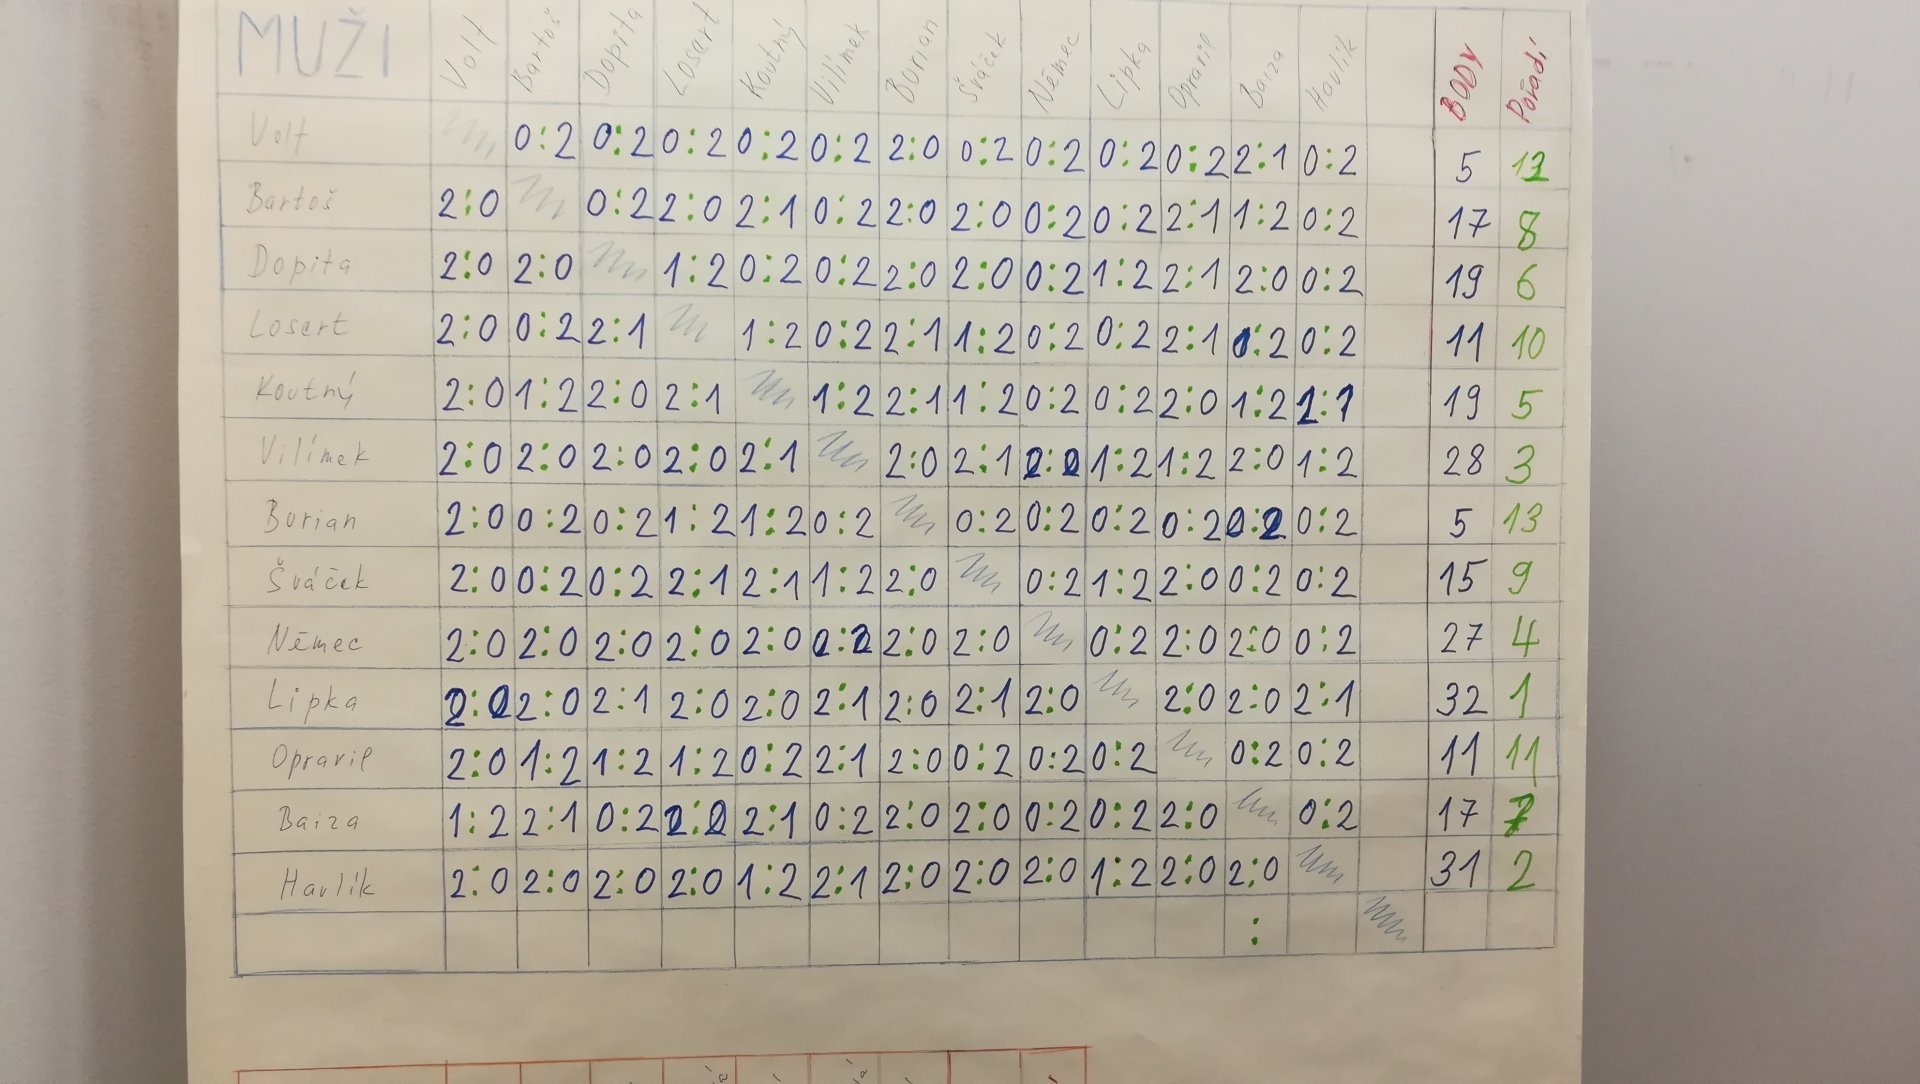 MUŽI Volf Bartoš Dopita Losert Koutný Vilímek Borian Šváček Němec Lipka Opravil Baiza Havlík BODY Pořadí
Volf 0:2 0:2 0:2 0:2 0:2 2:0 0:2 0:2 0:2 0:2 2:1 0:2 5 12
Bartoš 2:0 0:2 2:0 2:1 0:2 2:0 2:0 0:2 0:2 2:1 1:2 0:2 17 8
Dopita 2:0 2:0 1:2 0:2 0:2 2:0 2:0 0:2 1:2 2:1 2:0 0:2 19 6
Losert 2:0 0:2 2:1 1:2 0:2 2:1 1:2 0:2 0:2 2:1 0:2 0:2 11 10
Koutný 2:0 1:2 2:0 2:1 1:2 2:1 1:2 0:2 0:2 2:0 1:2 2:1 19 5
Vilímek 2:0 2:0 2:0 2:0 2:1 2:0 2:1 2:0 1:2 1:2 2:0 1:2 28 3
Borian 2:0 0:2 0:2 1:2 1:2 0:2 0:2 0:2 0:2 0:2 0:2 0:2 5 13
Šváček 2:0 0:2 0:2 2:1 2:1 1:2 2:0 0:2 1:2 2:0 0:2 0:2 15 9
Němec 2:0 2:0 2:0 2:0 2:0 0:2 2:0 2:0 0:2 2:0 2:0 0:2 27 4
Lipka 2:0 2:0 2:1 2:0 2:0 2:1 2:0 2:1 2:0 2:0 2:0 2:1 32 1
Opravil 2:0 1:2 1:2 1:2 0:2 2:1 2:0 0:2 0:2 0:2 0:2 0:2 11 11
Baiza 1:2 2:1 0:2 2:0 2:1 0:2 2:0 2:0 0:2 0:2 2:0 0:2 17 7
Havlík 2:0 2:0 2:0 2:0 1:2 2:1 2:0 2:0 2:0 1:2 2:0 2:0 31 2
: